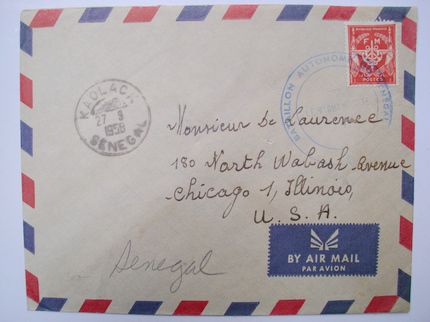 KAOLACK
27 9
1958
SENEGAL
BATAILLON AUTONOME DU SENEGAL
F M
POSTES
Monsieur De Laurence
180 North Wabash Avenue
Chicago 1, Illinois,
U. S. A.
BY AIR MAIL
PAR AVION
Senegal